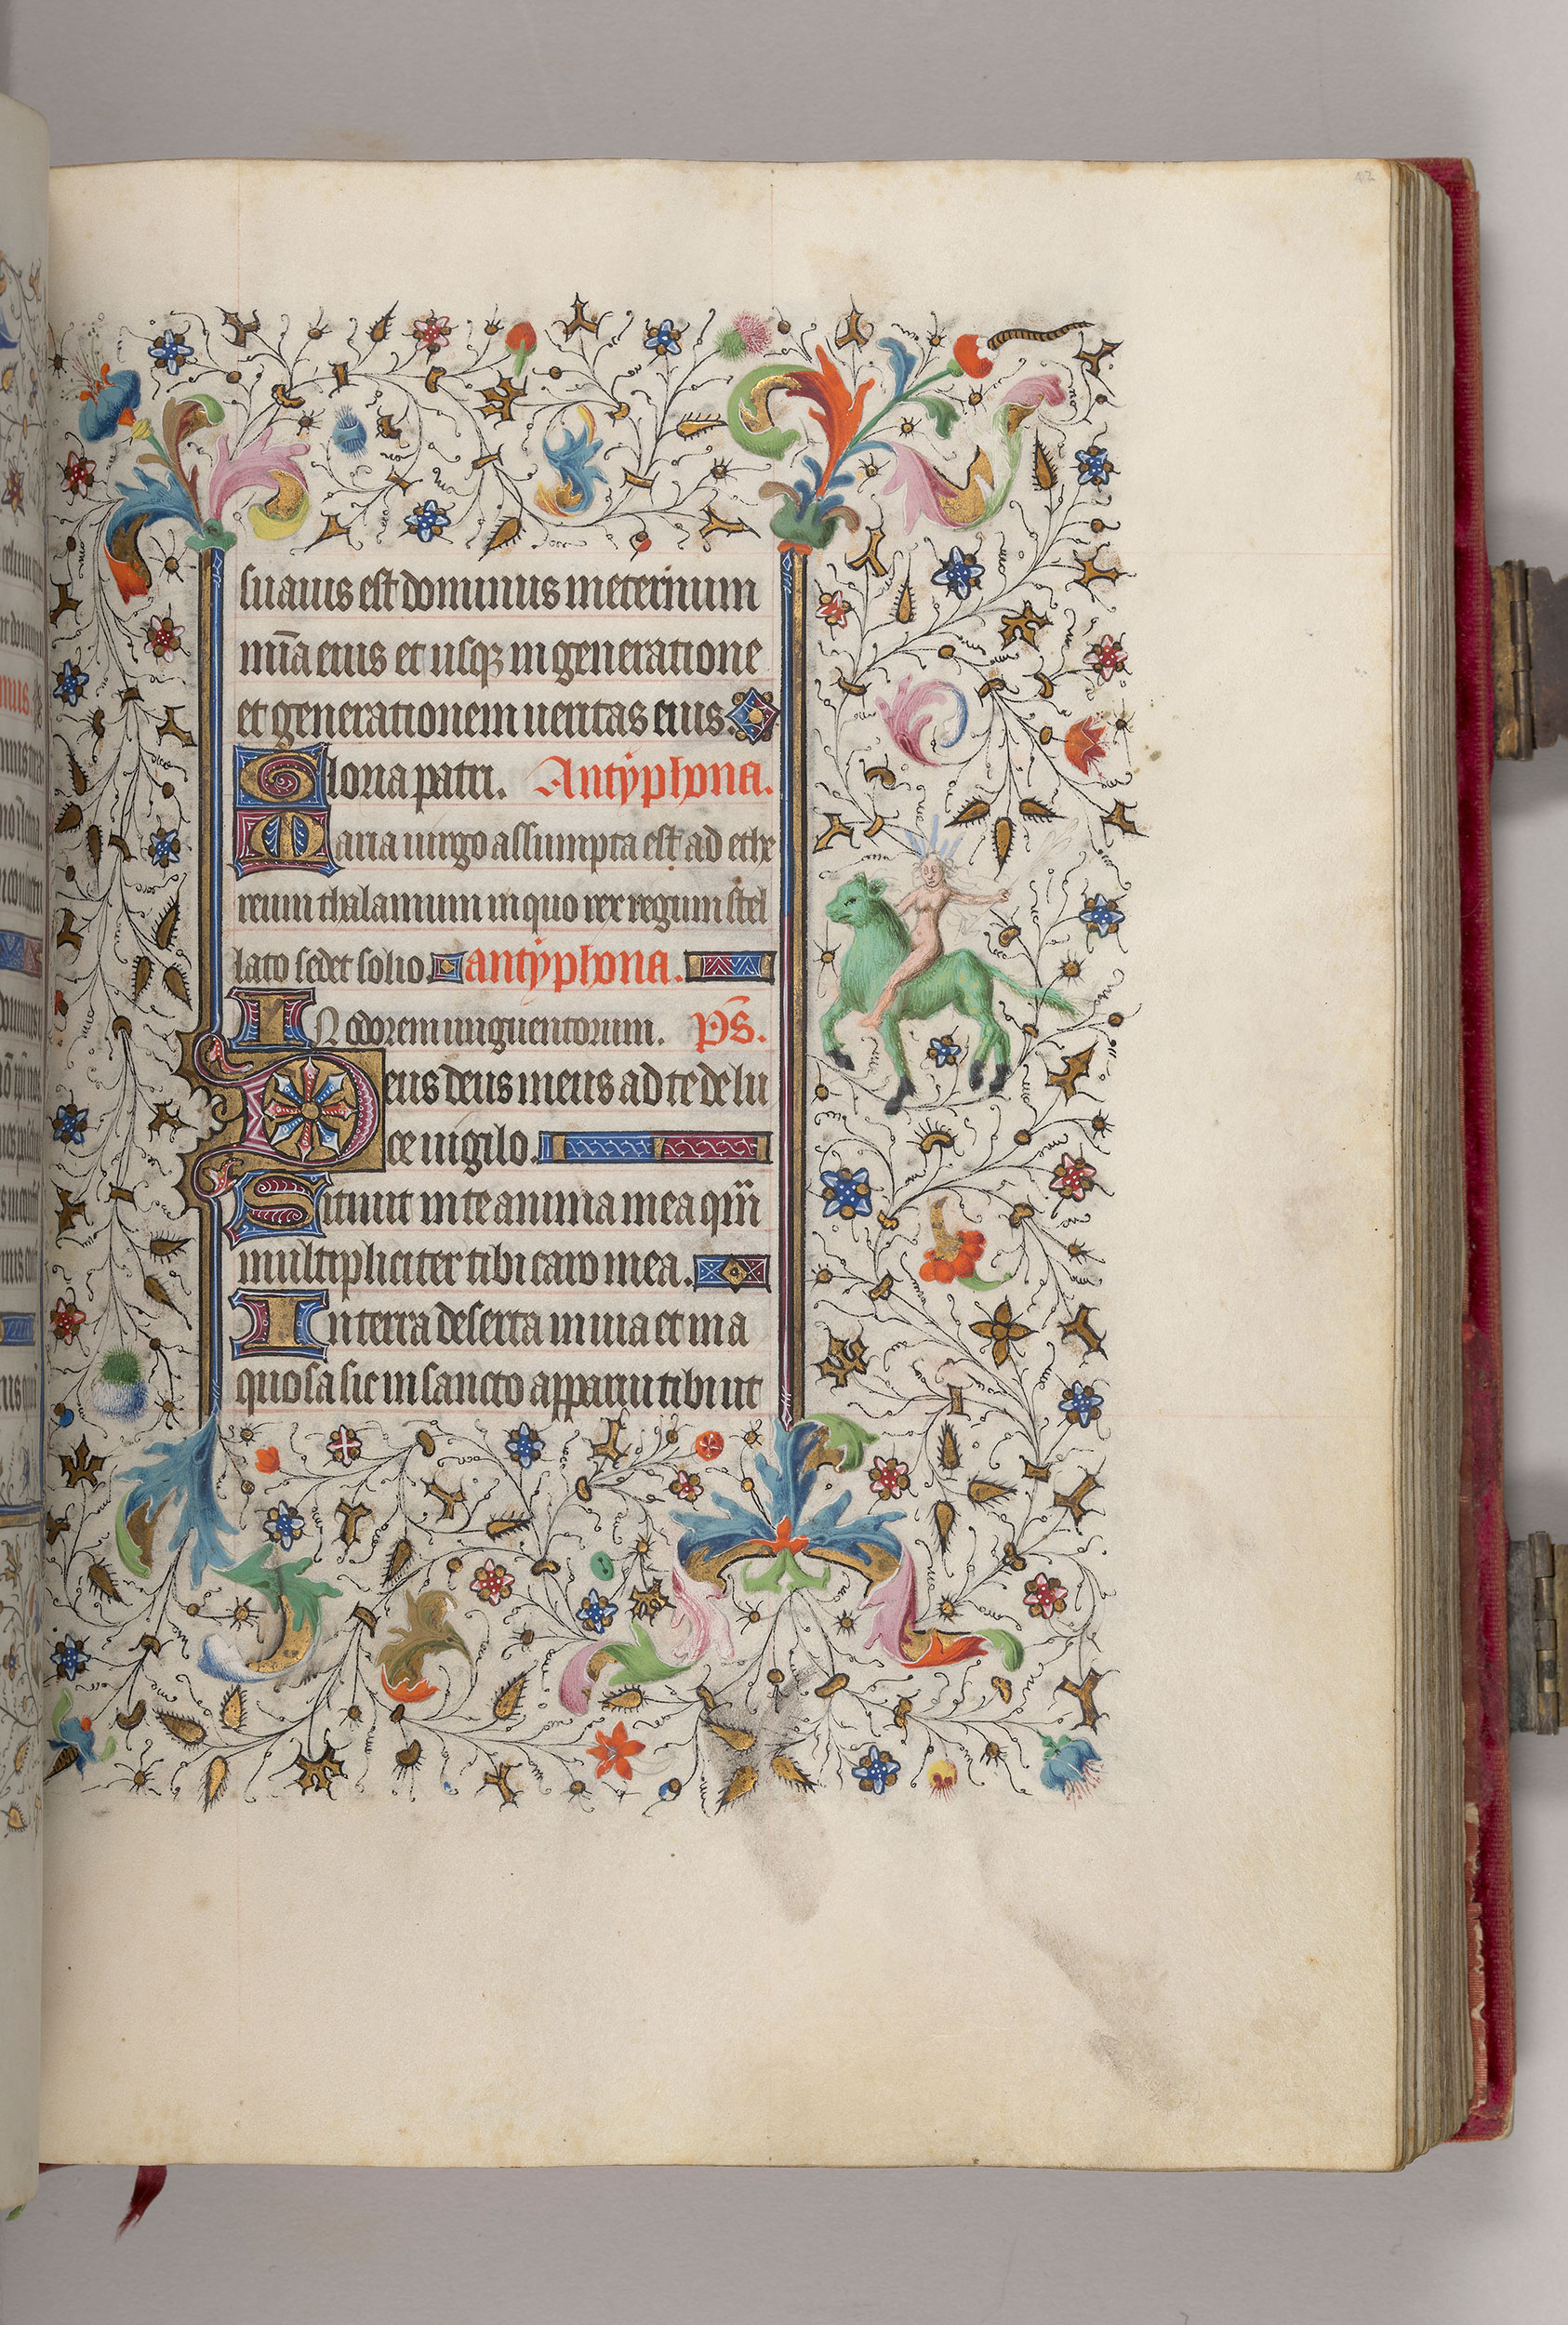 42
suauis est dominus in eternum
mīa eius et usqꝫ in generatione
et generationem ueritas eius.
Gloria patri. Antyphona.
Maria uirgo assumpta est ad ethe
reum thalamum in quo rex regum stel
lato sedet solio antyphona.
IN odorem unguentorum. p̄s.
Deus deus meus ad te de lu
ce uigilo.
Sitiuit in te anima mea qm̄
multipliciter tibi caro mea.
In terra deserta in uia et in a
quosa sic in sancto apparui tibi ut